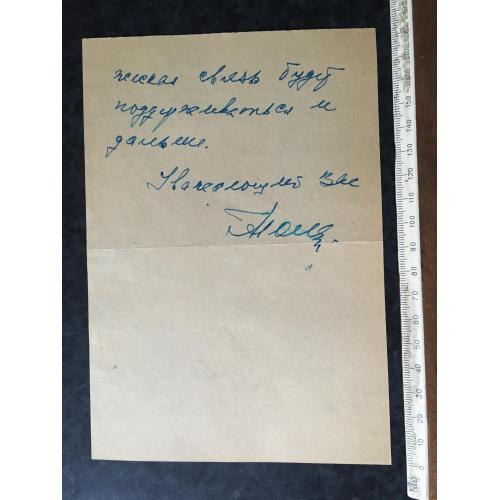 жеская связь будет
поддерживаться и
дальше.
Уважающий Вас
0
10
20
30
40
50
60
70
80
90
100
110
120
130
140
150